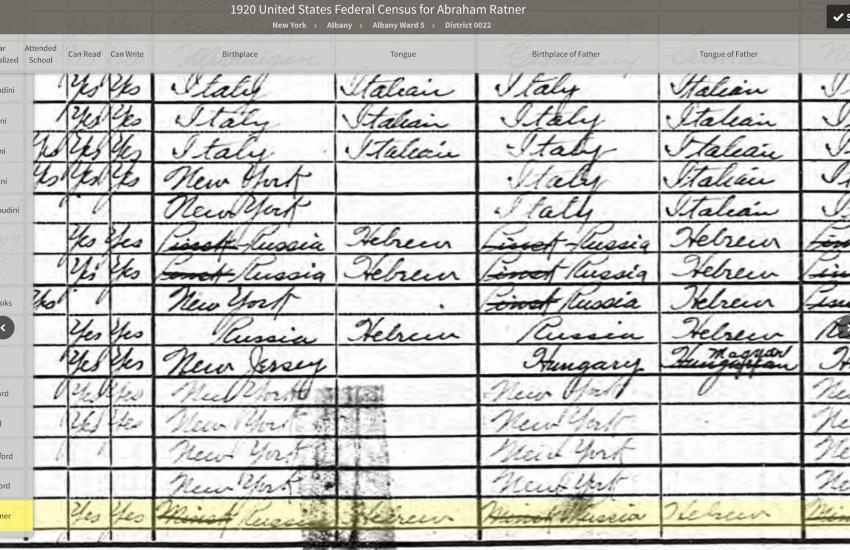 1920 United States Federal Census for Abraham Ratner
New York > Albany > Albany Ward 5 > District 0022
Attended School Can Read Can Write Birthplace Tongue Birthplace of Father Tongue of Father
Yes Yes Italy Italian Italy Italian
Yes Yes Italy Italian Italy Italian
Yes Yes Yes Italy Italian Italy Italian
Yes Yes Yes New York Italy Italian
New York Italy Italian
Yes Yes Pinsk-Russia Hebrew Pinsk-Russia Hebrew
Yes Yes Pinsk Russia Hebrew Pinsk Russia Hebrew
Yes New York Pinsk Russia Hebrew
Yes Yes Russia Hebrew Russia Hebrew
Yes Yes New Jersey Hungary Hungarian Magyar
Yes Yes New York New York
Yes Yes New York New York
New York New York
New York New York
Yes Yes Minsk Russia Hebrew Minsk Russia Hebrew